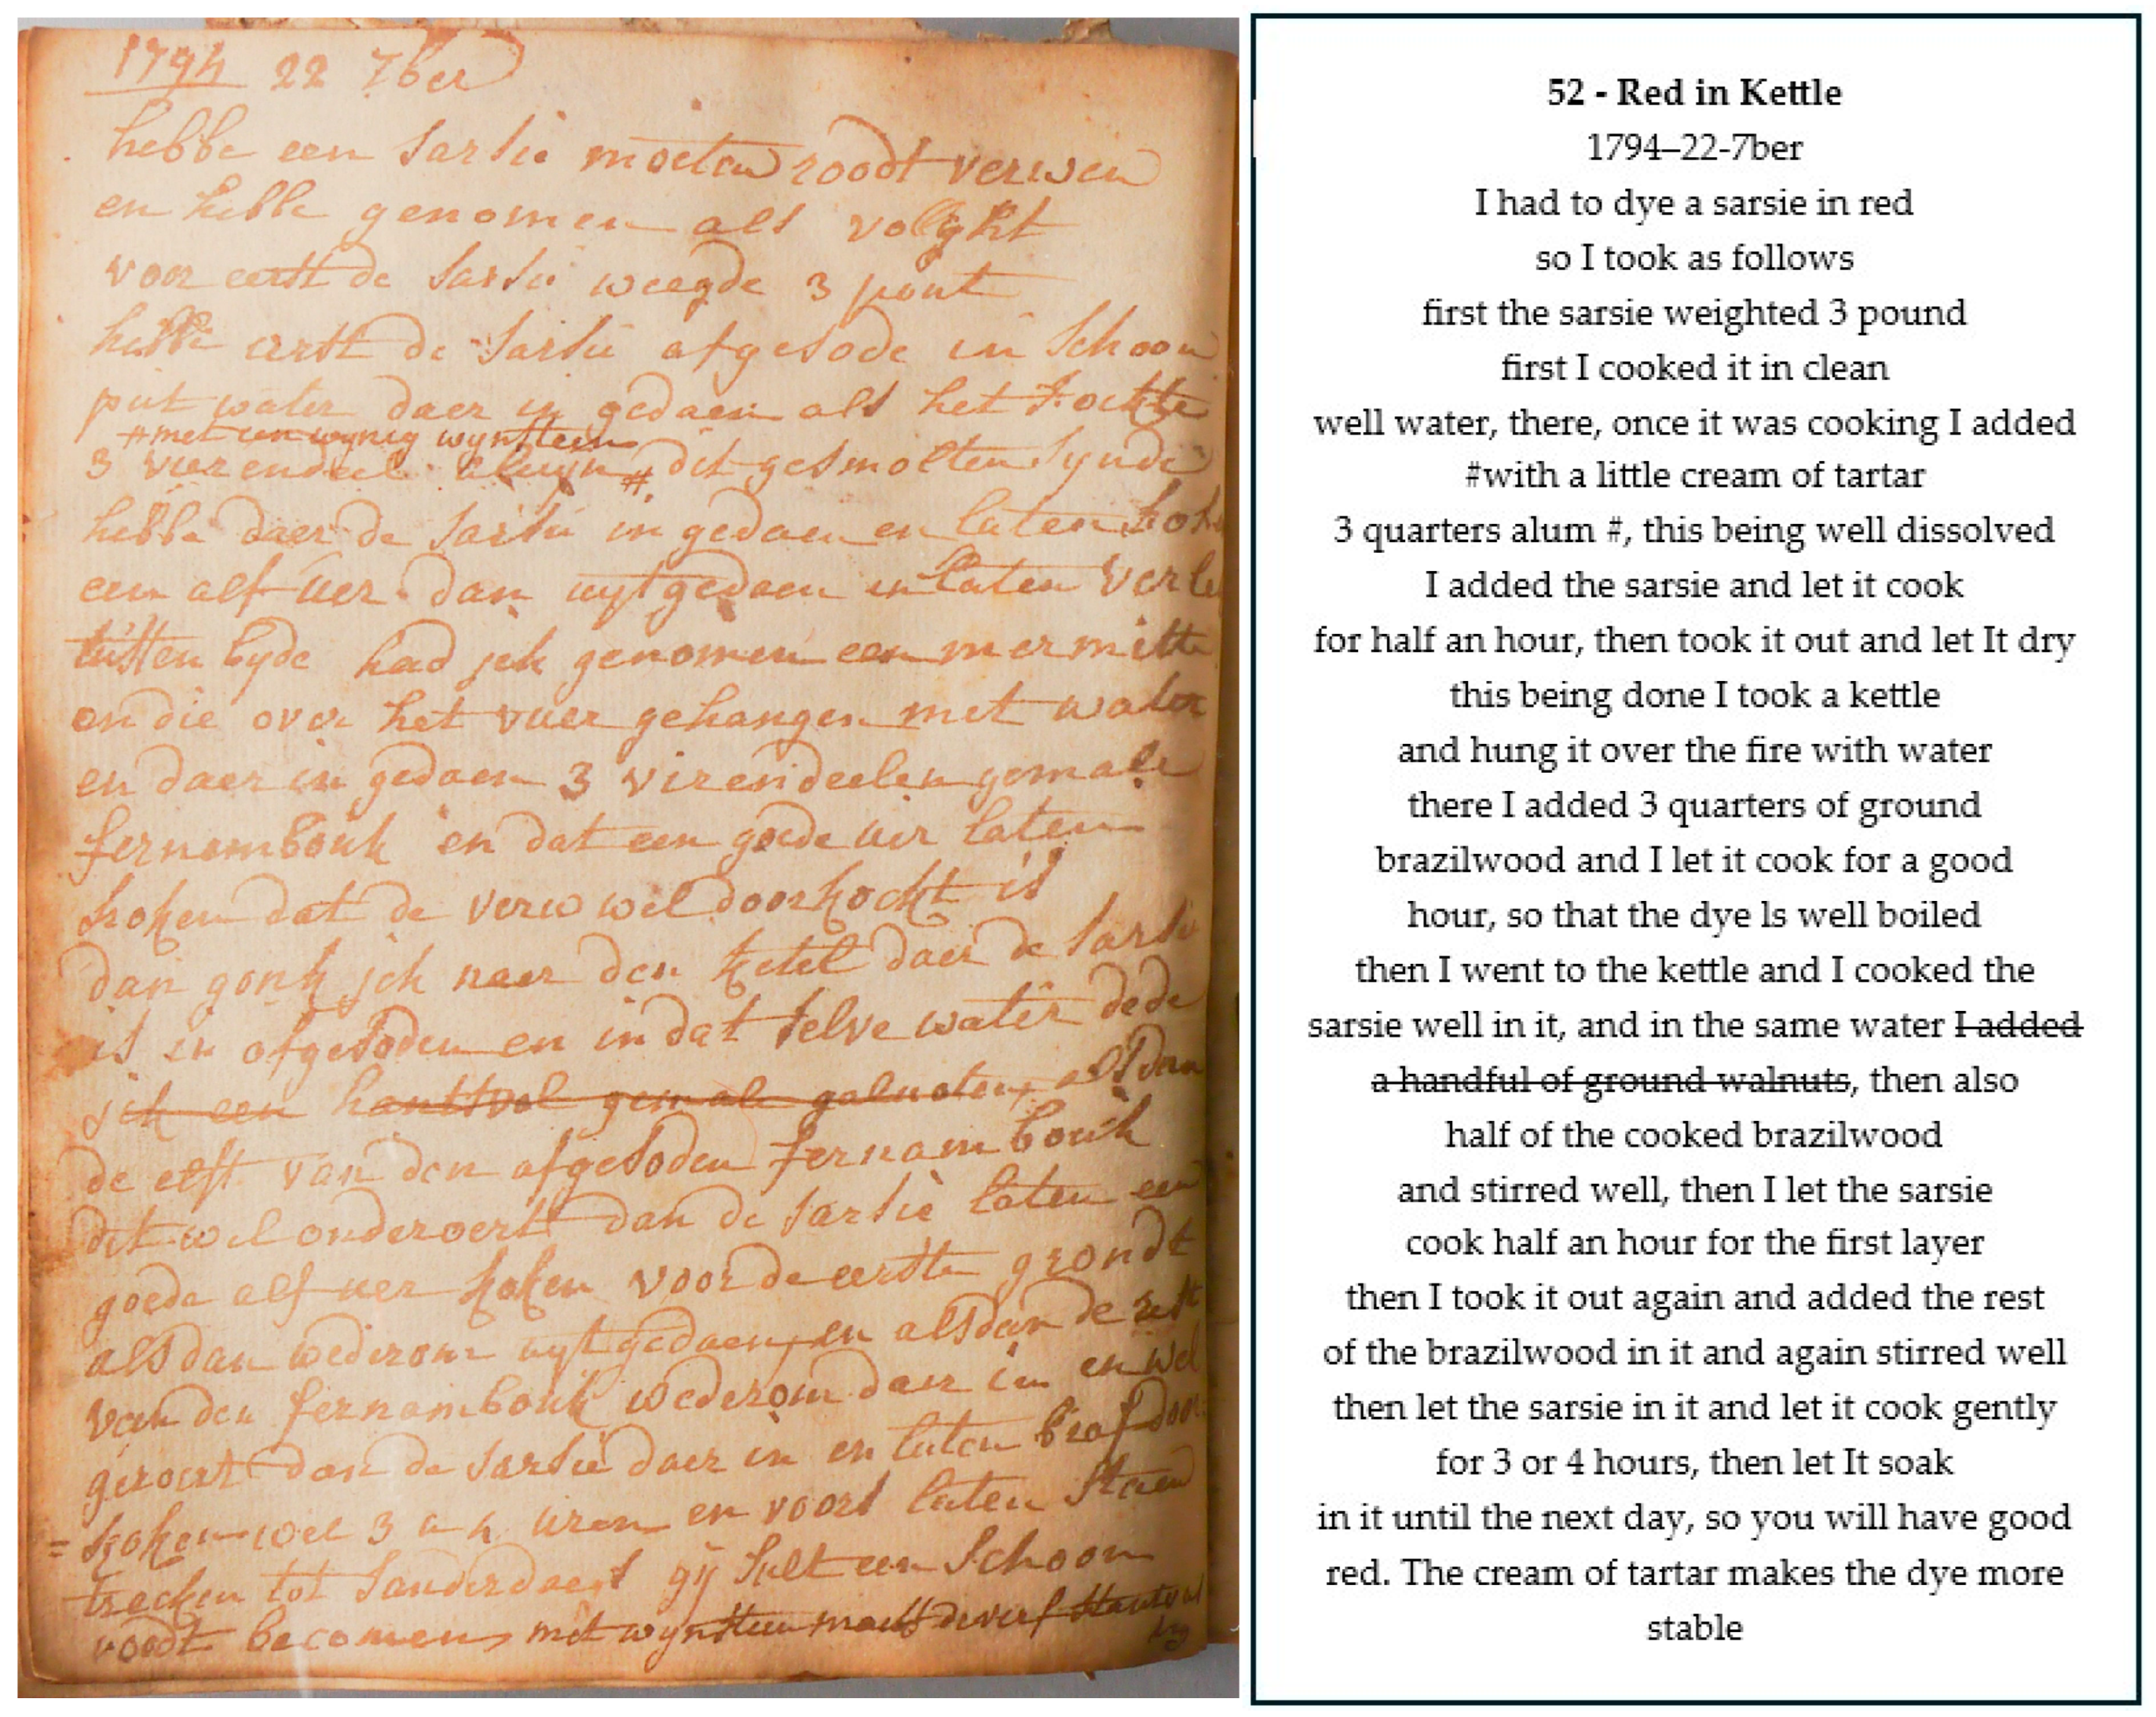 1794 22 7ber
hebbe een sarsie moeten roodt verwen
en hebbe genomen als volght
voor eerst de sarsie weegde 3 pont
hebbe erst de sarsie afgesode in schoon
put water daer in gedaen als het kockte
#met een wynig wynsteen
3 vierendeel aluyn # dit gesmolten synde
hebbe daer de sarsie in gedaen en laten koken
een alf uer dan uytgedaen en laten
tussen byde had jck genomen een mermitte
en die over het vuer gehangen met water
en daer in gedaen 3 virendeelen gemale
fernambouk en dat een goede uer laten
koken dat de verw wel doorkockt is
dan gonk jck naer den ketel daer de sarsie
is in afgesoden en in dat selve water dede
jck een hantsvol gemale galnoten, alsdan
de elft van den afgesoden fernambouk
dit wel onderoert dan de sarsie laten een
goede alf uer koken voor de eerste grondt
alsdan wederom uyt gedaen, en alsdan de rest
van den fernambouk wederom daer in en wel
geroert dan de sarsie daer in en laten braf door
= koken wel 3 a 4 uren en voort laten staen
trecken tot sanderdaegs gij sult een schoon
roodt becomen, met wynsteen maekt de verf
52 - Red in Kettle
1794–22-7ber
I had to dye a sarsie in red
so I took as follows
first the sarsie weighted 3 pound
first I cooked it in clean
well water, there, once it was cooking I added
#with a little cream of tartar
3 quarters alum #, this being well dissolved
I added the sarsie and let it cook
for half an hour, then took it out and let It dry
this being done I took a kettle
and hung it over the fire with water
there I added 3 quarters of ground
brazilwood and I let it cook for a good
hour, so that the dye ls well boiled
then I went to the kettle and I cooked the
sarsie well in it, and in the same water I added
a handful of ground walnuts, then also
half of the cooked brazilwood
and stirred well, then I let the sarsie
cook half an hour for the first layer
then I took it out again and added the rest
of the brazilwood in it and again stirred well
then let the sarsie in it and let it cook gently
for 3 or 4 hours, then let It soak
in it until the next day, so you will have good
red. The cream of tartar makes the dye more
stable